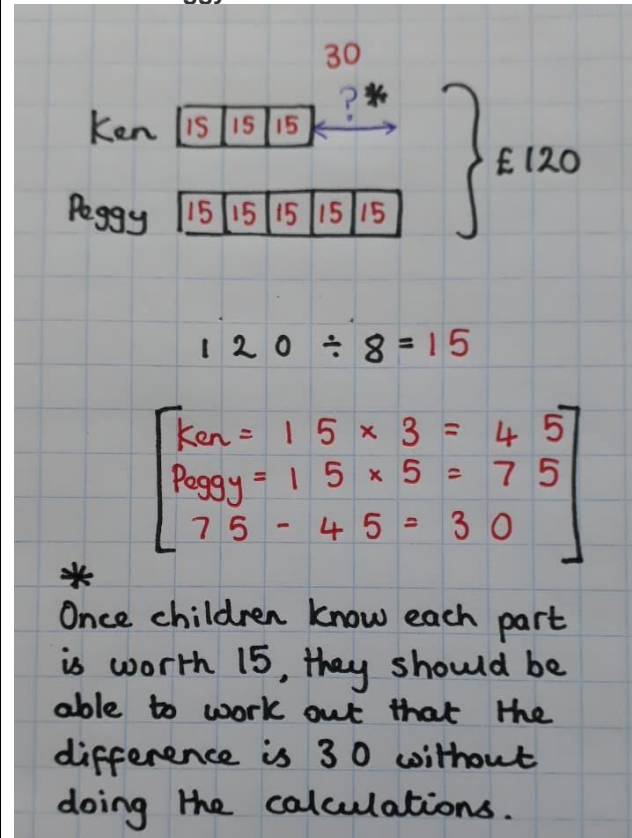 30
?*
Ken 15 15 15
£120
Peggy 15 15 15 15 15
120 ÷ 8 = 15
Ken = 15 × 3 = 45
Peggy = 15 × 5 = 75
75 - 45 = 30
*
Once children know each part
is worth 15, they should be
able to work out that the
difference is 30 without
doing the calculations.